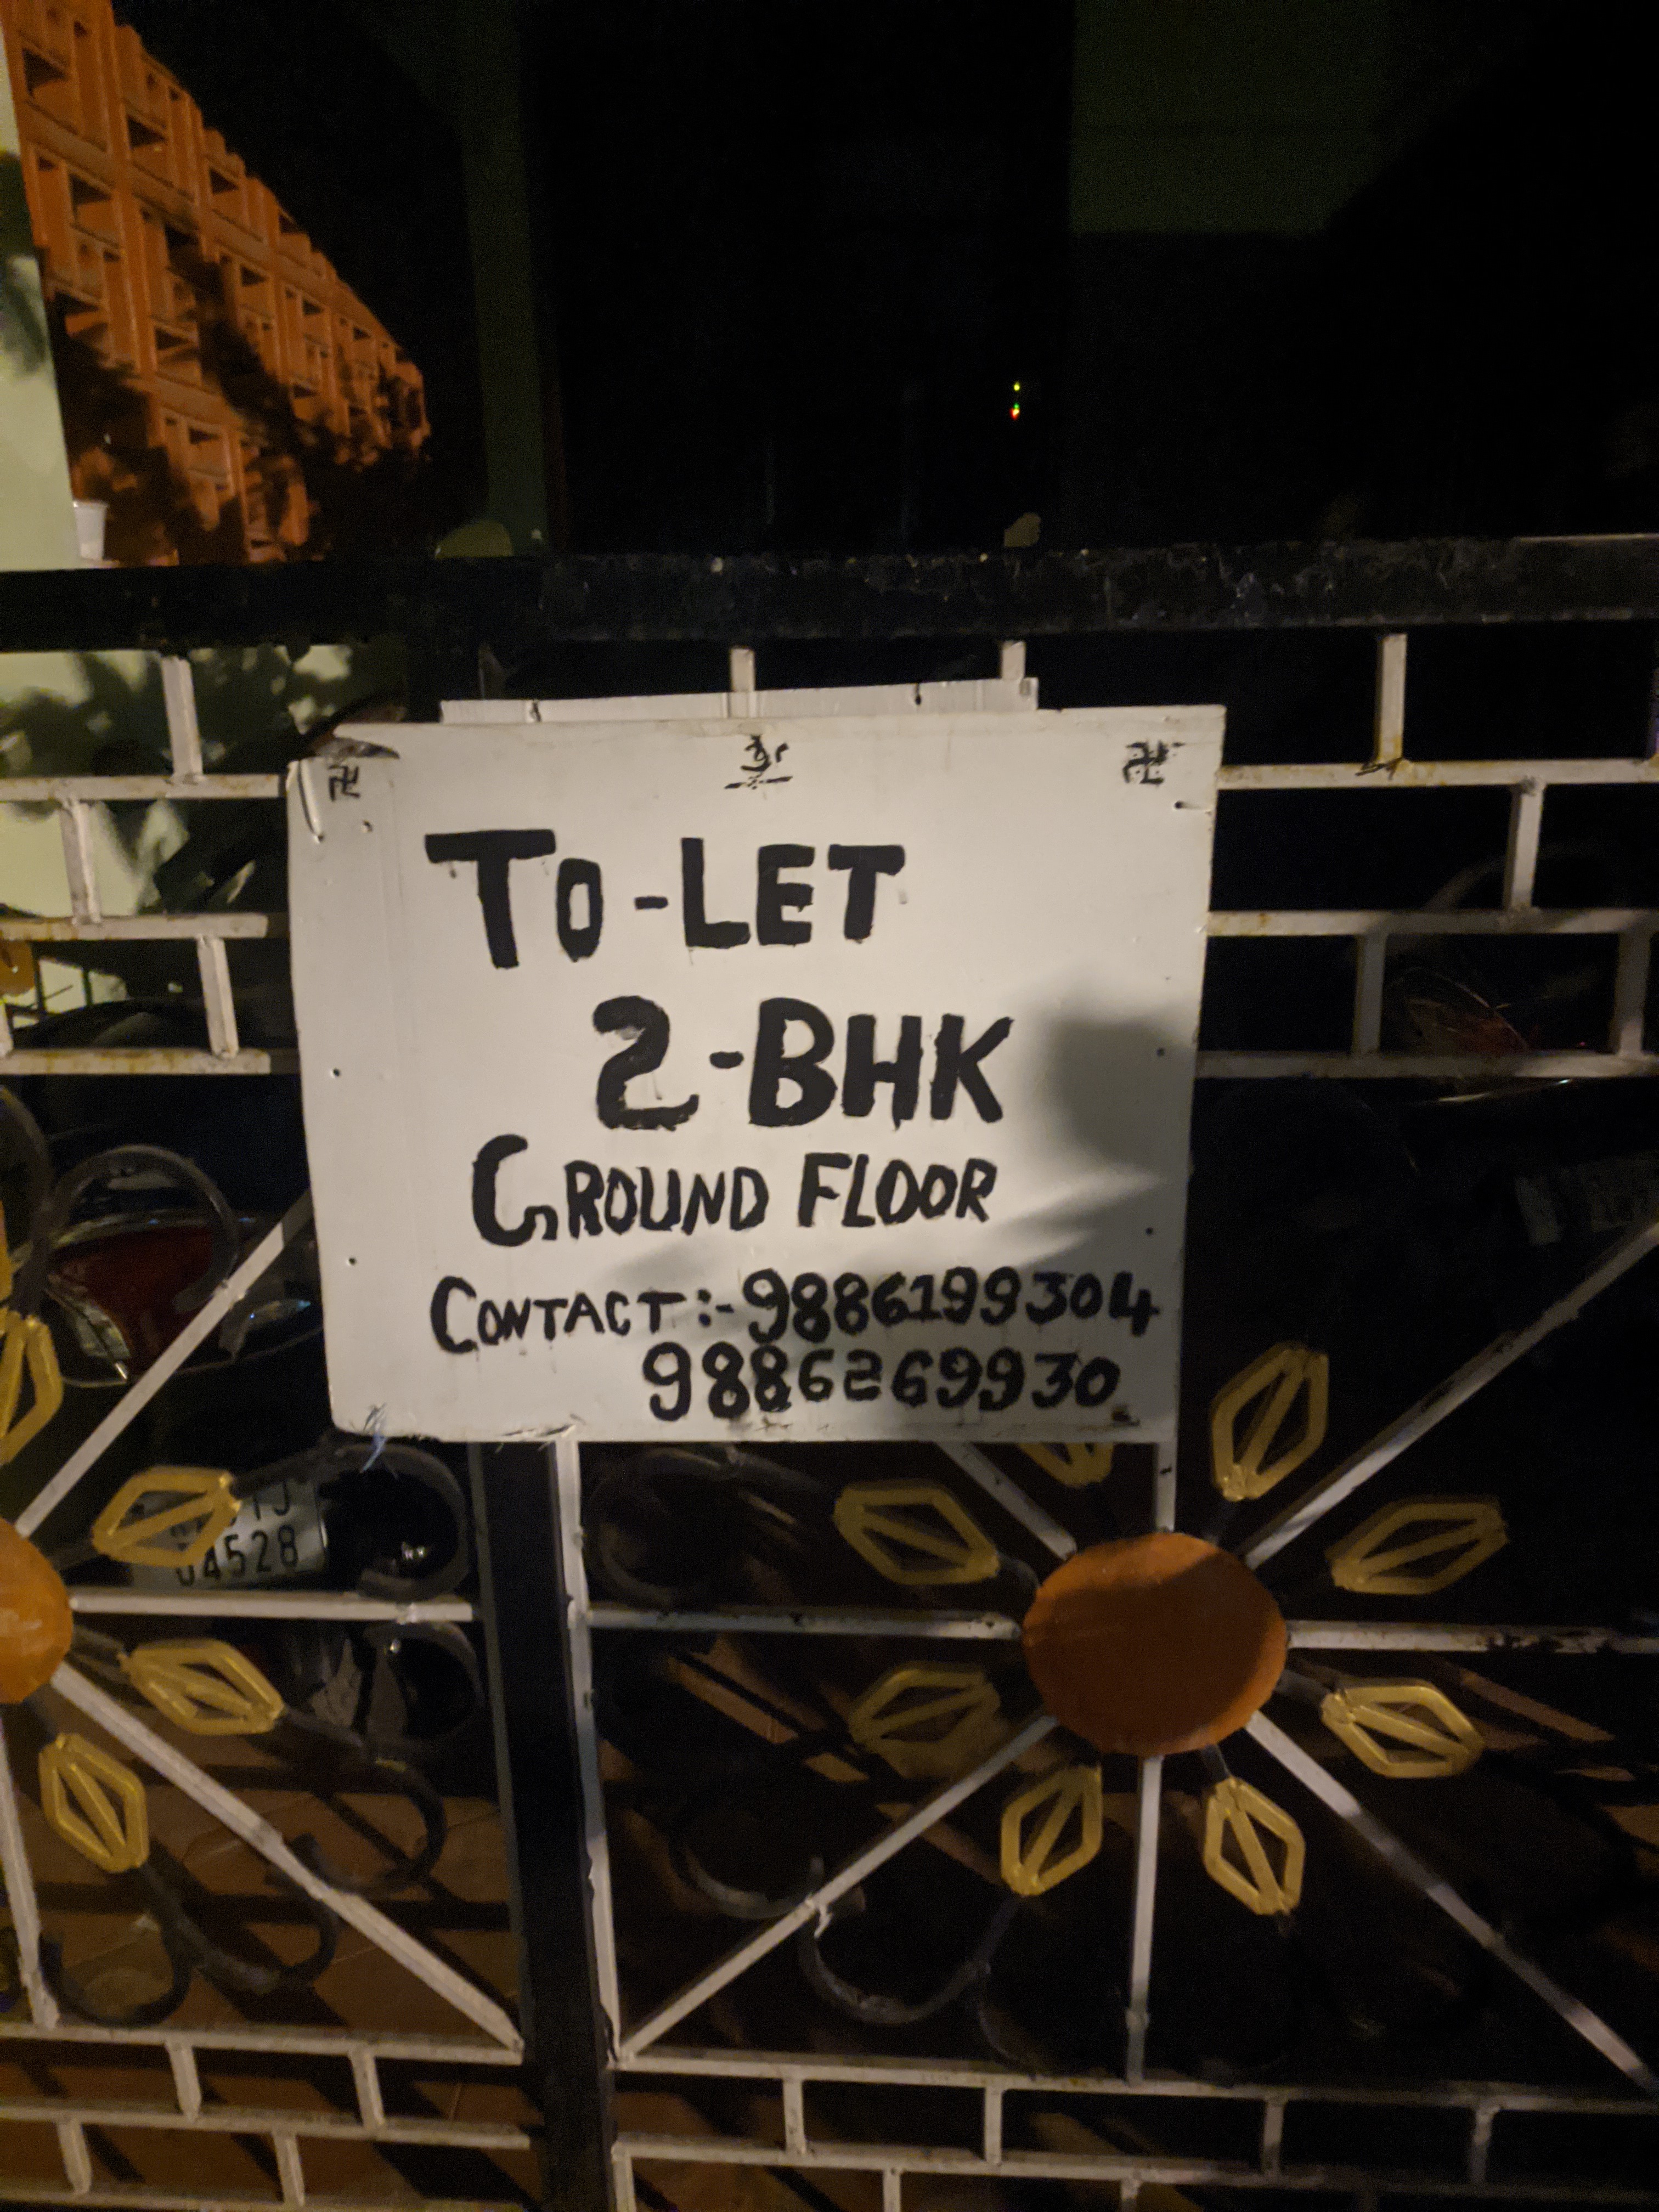 TO-LET
2-BHK
GROUND FLOOR
CONTACT:-9886199304
9886269930
04528